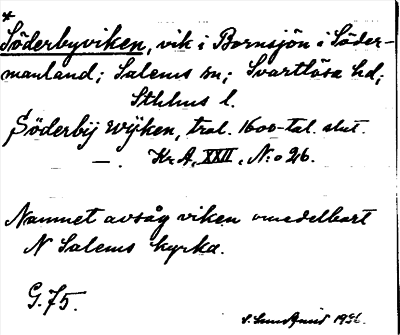 *
Söderbyviken, vik i Bornsjön i Söder-
manland; Salems sn; Svartlösa hd;
Sthlms l.
Söderbij wijken, trol. 1600-tal. slut.
— . Kr. A, XXII, N:o 26.
Namnet avsåg viken omedelbart
N Salems kyrka.
G. 75.
1936.